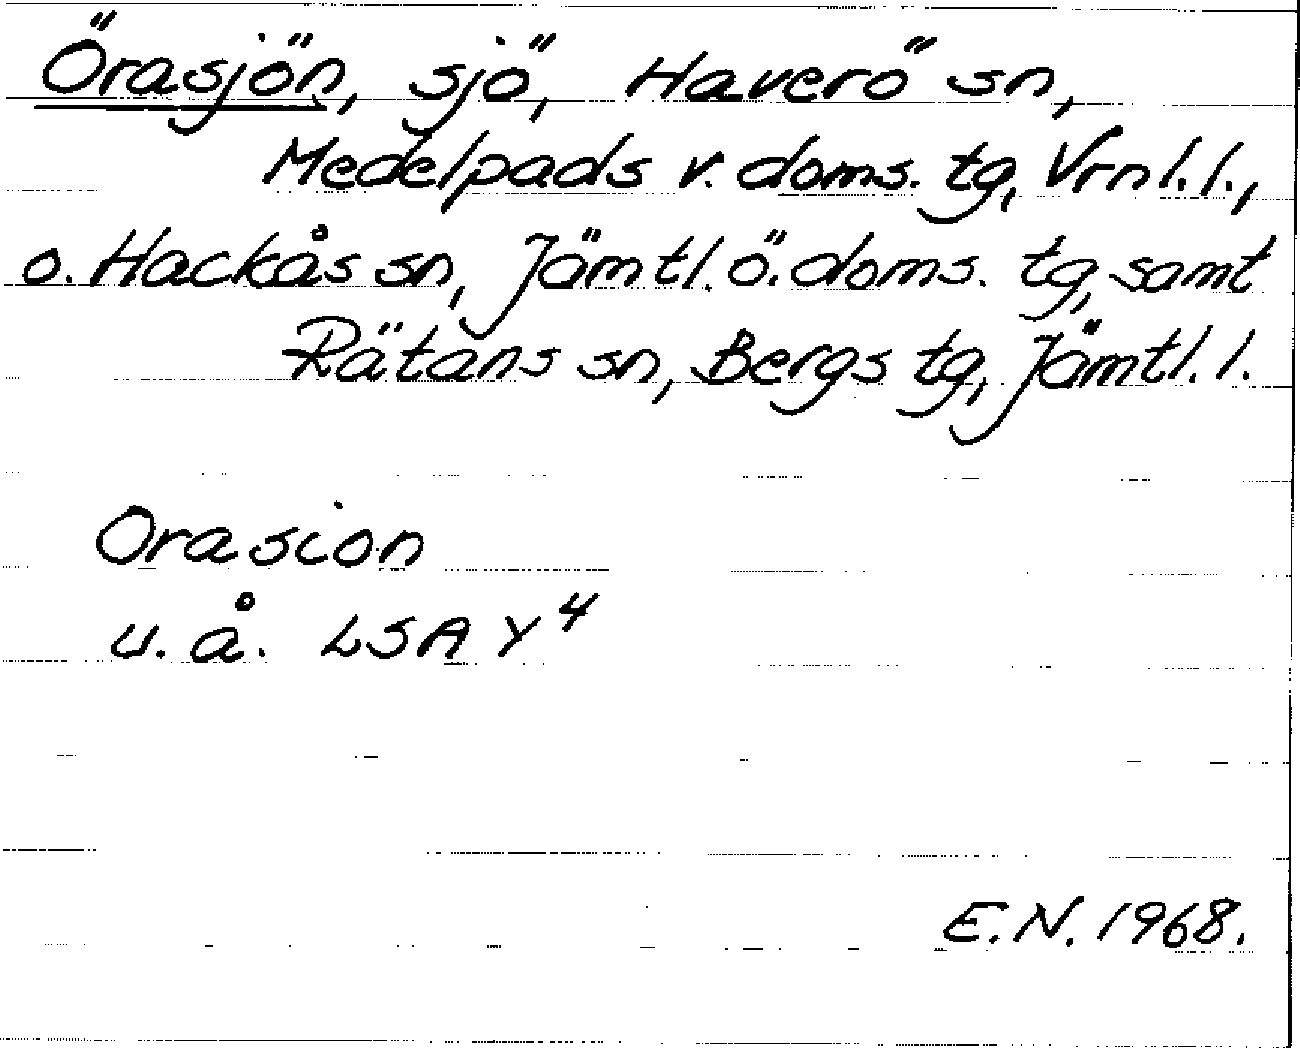 Örasjön, sjö, Haverö sn,
Medelpads v. doms. tg, Vrnl. l.,
o. Hackås sn, Jämtl. ö. doms. tg, samt
Rätans sn, Bergs tg, Jämtl. l.
Orasion
u. å. LSA Y⁴
E. N. 1968.